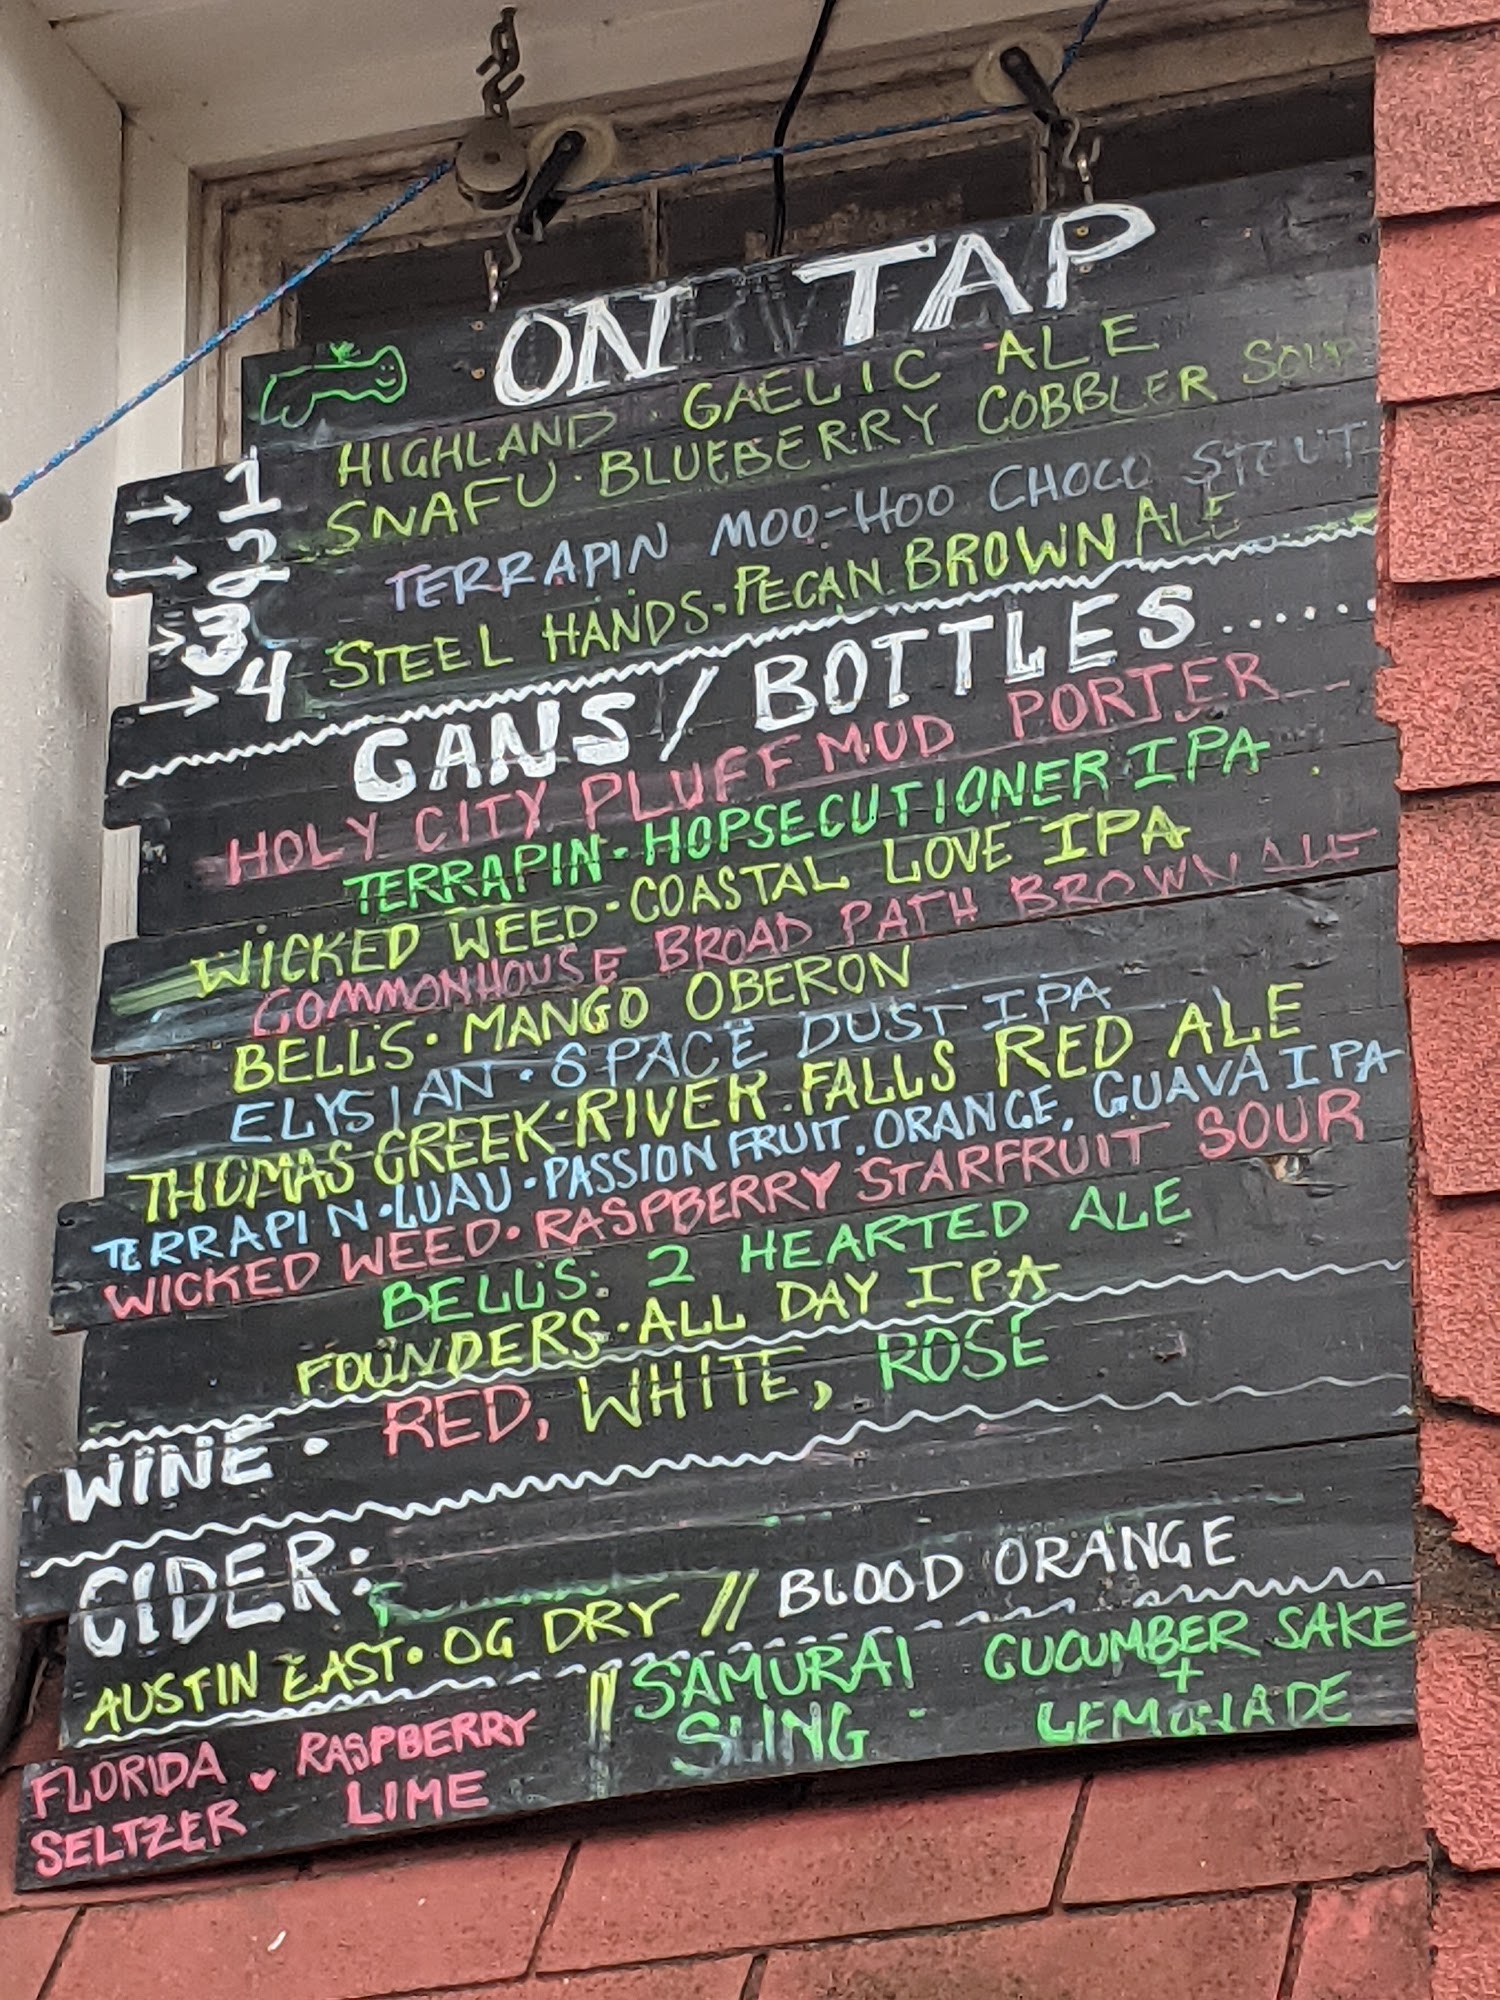 ON TAP
→ 1 HIGHLAND · GAELIC ALE
→ 2 SNAFU · BLUEBERRY COBBLER SOUR
→ 3 TERRAPIN MOO-HOO CHOCO STOUT
→ 4 STEEL HANDS · PECAN BROWN ALE
CANS / BOTTLES.....
HOLY CITY PLUFF MUD PORTER
TERRAPIN · HOPSECUTIONER IPA
WICKED WEED · COASTAL LOVE IPA
COMMONHOUSE BROAD PATH BROWN ALE
BELL'S · MANGO OBERON
ELYSIAN · SPACE DUST IPA
THOMAS CREEK · RIVER FALLS RED ALE
TERRAPIN · LUAU · PASSION FRUIT, ORANGE, GUAVA IPA
WICKED WEED · RASPBERRY STARFRUIT SOUR
BELL'S: 2 HEARTED ALE
FOUNDERS · ALL DAY IPA
WINE · RED, WHITE, ROSÉ
CIDER:
AUSTIN EAST · OG DRY // BLOOD ORANGE
FLORIDA SELTZER · RASPBERRY LIME // SAMURAI SLING - CUCUMBER SAKE + LEMONADE